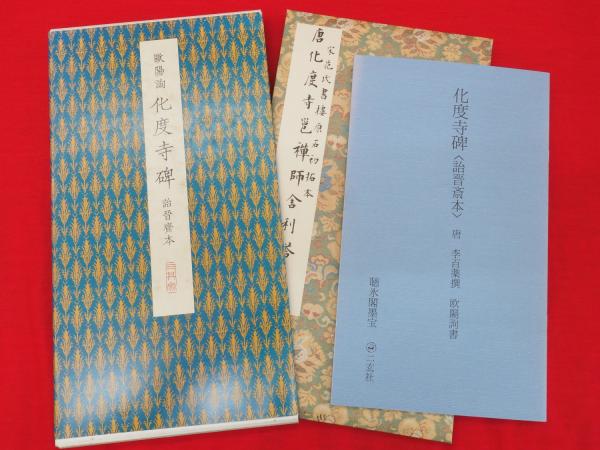 歐陽詢 化度寺碑 詒晉齋本
宋范氏書樓原石初拓本
唐化度寺邕禪師舍利塔
化度寺碑〈詒晉斎本〉
唐 李百薬撰 欧陽詢書
聴氷閣墨宝 二玄社